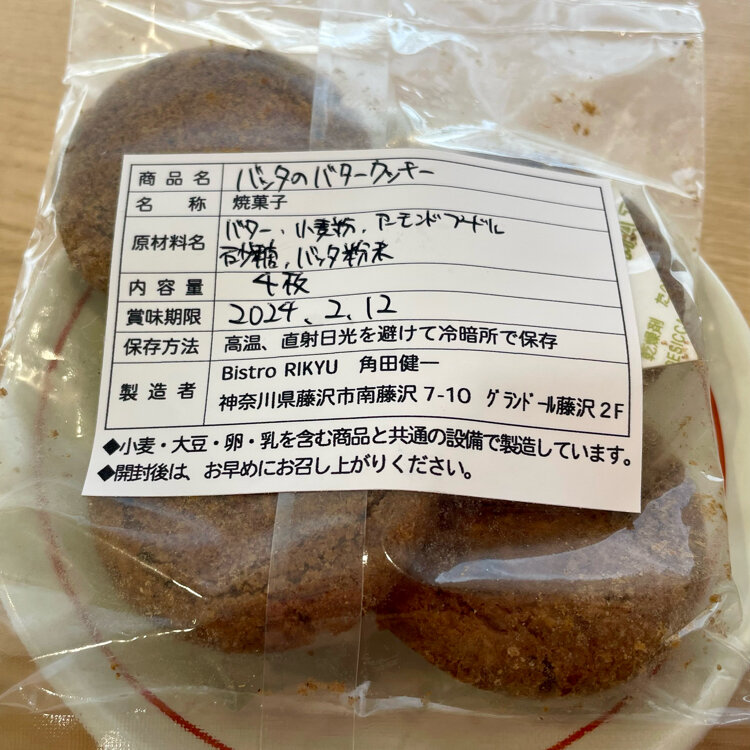 商品名 バッタのバタークッキー
名称 焼菓子
原材料名 バター、小麦粉、アーモンドプードル
砂糖、バッタ粉末
内容量 4枚
賞味期限 2024、2、12
保存方法 高温、直射日光を避けて冷暗所で保存
製造者 Bistro RIKYU 角田健一
神奈川県藤沢市南藤沢7-10 グランドール藤沢2F
◆小麦・大豆・卵・乳を含む商品と共通の設備で製造しています。
◆開封後は、お早めにお召し上がりください。
乾燥剤